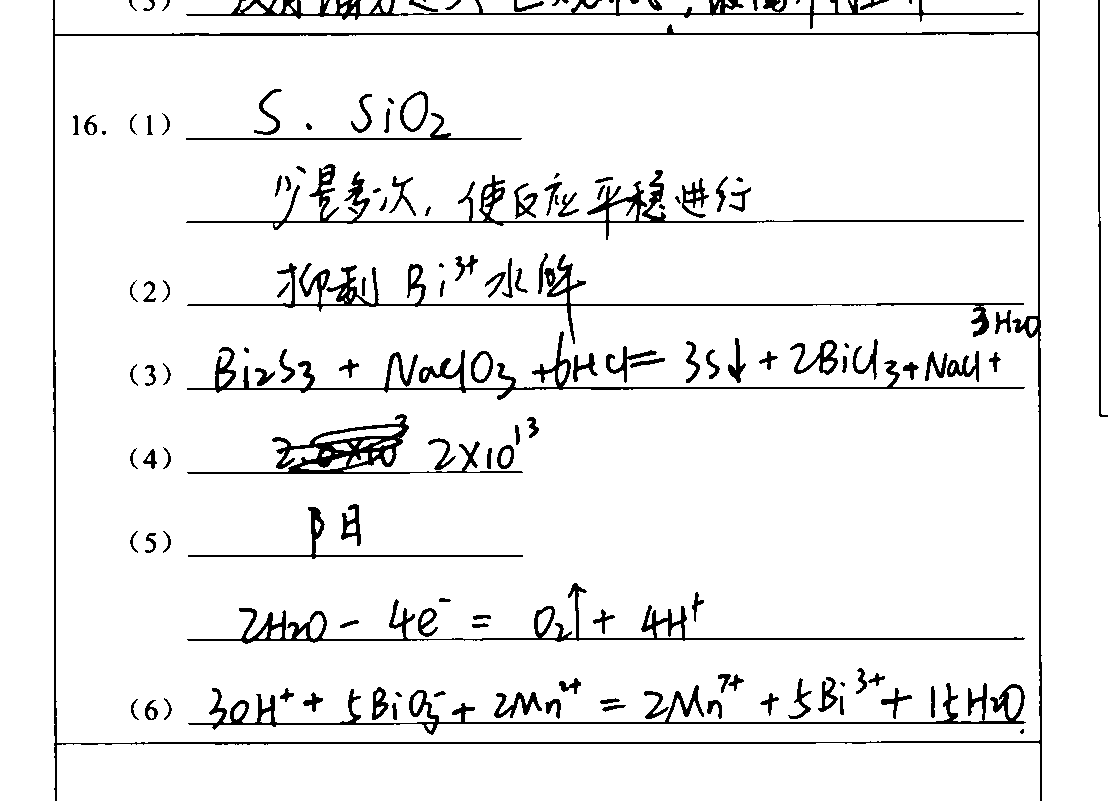 (3)
16. (1) S. SiO₂
少量多次, 使反应平稳进行
(2) 抑制 Bi³⁺ 水解
3H₂O
(3) Bi₂S₃ + NaClO₃ + 6HCl = 3S↓ + 2BiCl₃ + NaCl +
(4) 2×10¹³
(5) 阳
2H₂O - 4e⁻ = O₂↑ + 4H⁺
(6) 30H⁺ + 5BiO₃⁻ + 2Mn²⁺ = 2Mn⁷⁺ + 5Bi³⁺ + 15H₂O.